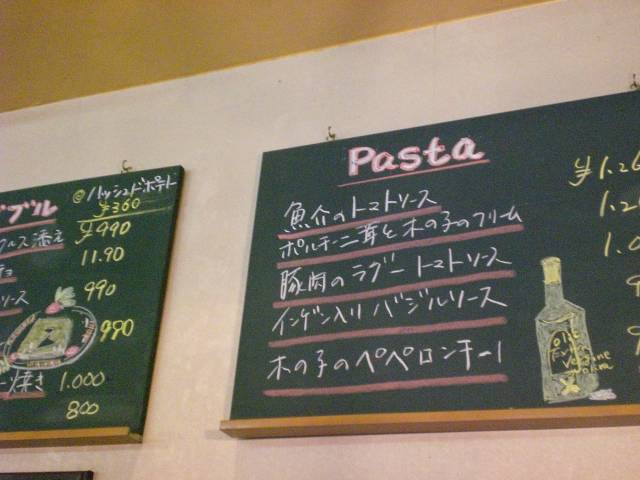 @ハッシュドポテト
¥360
ブル
ルス添え ¥990
11.90
ソース 990
990
焼き 1.000
800
Pasta
魚介のトマトソース
ポルチーニ茸と木の子のクリーム
豚肉のラグートマトソース
インゲン入りバジルソース
木の子のペペロンチーノ
¥1.26
1.2
1.0
Olive
Extra
Virgine